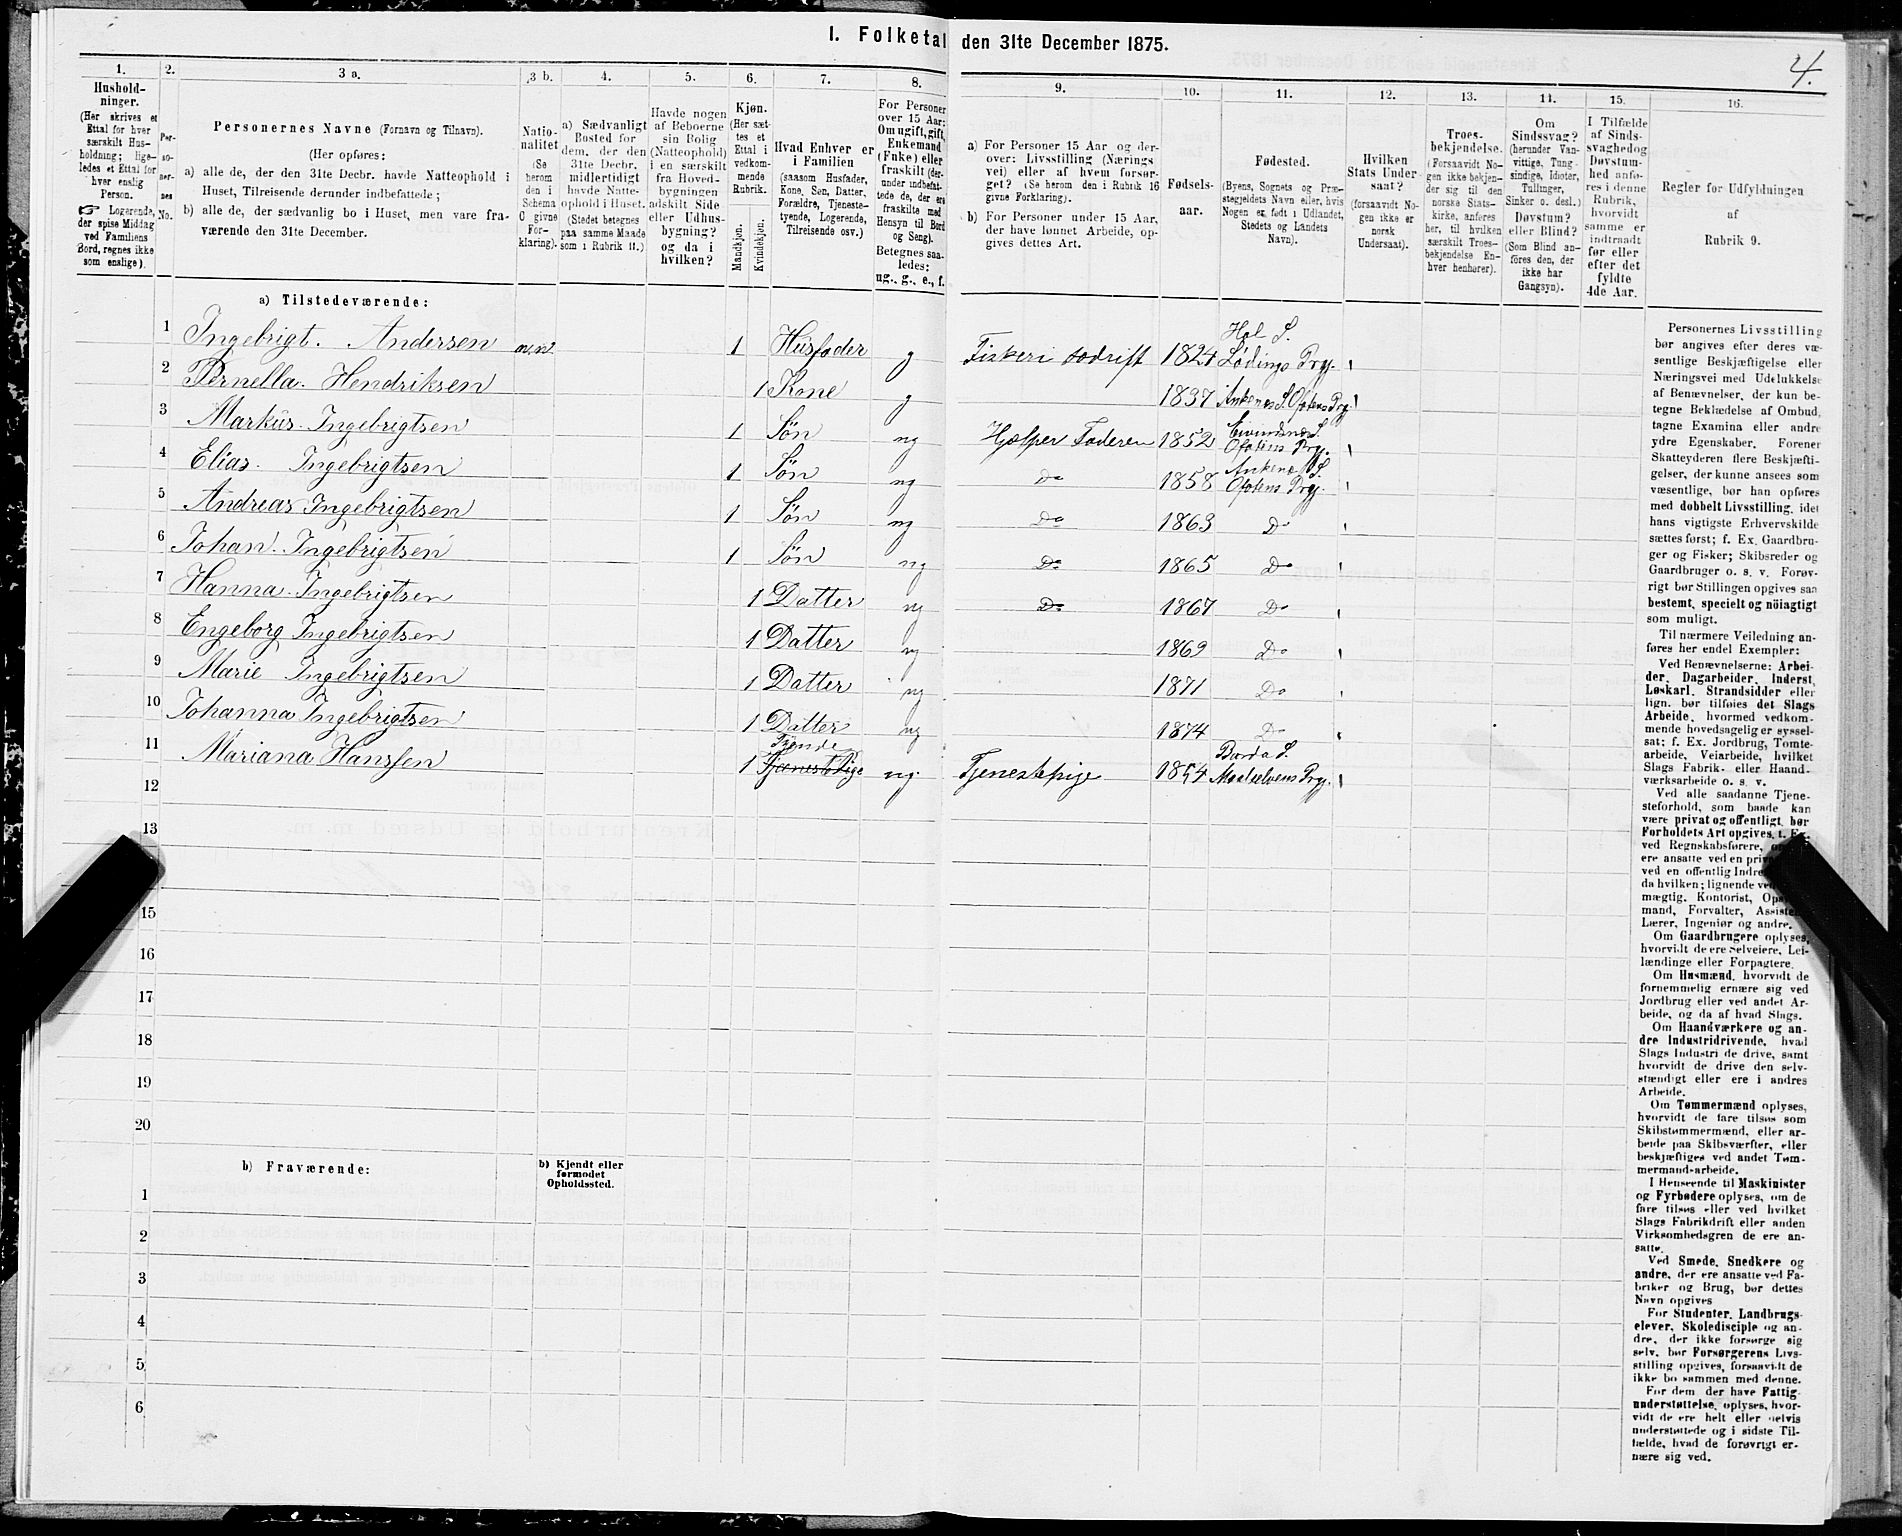 I. Folketal den 31te December 1875.
4.
1.
Hushold-
ninger.
(Her skrives et
Ettal for hver
særskilt Hus-
holdning; lige-
ledes et Ettal for
hver enslig
Person.
☞ Logerende,
der spise Middag
ved Familiens
Bord, regnes ikke
som enslige).
2.
Per-
so-
ner-
nes
No.
3 a.
Personernes Navne (Fornavn og Tilnavn).
(Her opføres:
a) alle de, der den 31te Decbr. havde Natteophold i
Huset, Tilreisende derunder indbefattede;
b) alle de, der sædvanlig bo i Huset, men vare fra-
værende den 31te December.
3 b.
Natio-
nalitet
(Se
herom
den i
Schema
O givne
For-
klaring).
4.
a) Sædvanligt
Bosted for
dem, der den
31te Decbr.
midlertidigt
havde Natte-
ophold i Huset.
(Stedet betegnes
paa samme Maade
som i Rubrik 11.)
5.
Havde nogen
af Beboerne
sin Bolig
(Natteophold)
i en særskilt
fra Hoved-
bygningen
adskilt Side-
eller Udhus-
bygning?
og da i
hvilken?
6.
Kjøn.
(Her sæt-
tes et
Ettal i
vedkom-
mende
Rubrik.
Mandkjøn.
Kvindekjøn.
7.
Hvad Enhver er
i Familien
(saasom Husfader,
Kone, Søn, Datter,
Forældre, Tjeneste-
tyende, Logerende,
Tilreisende osv.)
8.
For Personer
over 15 Aar:
Om ugift, gift,
Enkemand
(Enke) eller
fraskilt (der-
under indbefat-
tede de, der ere
fraskilte med
Hensyn til Bord
og Seng).
Betegnes saa-
ledes:
ug., g., e., f.
9.
a) For Personer 15 Aar og der-
over: Livsstilling (Nærings
vei) eller af hvem forsør-
get? (Se herom den i Rubrik 16
givne Forklaring).
b) For Personer under 15 Aar,
der have lønnet Arbeide, op-
gives dettes Art.
10.
Fødsels-
aar.
11.
Fødested.
(Byens, Sognets og Præ-
stegjeldets Navn eller, hvis
Nogen er født i Udlandet,
Stedets og Landets
Navn).
12.
Hvilken
Stats Under-
saat?
(forsaavidt No-
gen ikke er
norsk
Undersaat).
13.
Troes-
bekjendelse.
(Forsaavidt No-
gen ikke bekjen-
der sig til den
norske Stats-
kirke, anføres
her, til hvilken
særskilt Troes-
bekjendelse En-
hver henhører).
14.
Om
Sindssvag?
(herunder Van-
vittige, Tung-
sindige, Idioter,
Tullinger,
Sinker o. desl.)
Døvstum?
eller Blind?
(Som Blind an-
føres den, der
ikke har
Gangsyn).
15.
I Tilfælde
af Sinds-
svaghed og
Døvstum-
hed anfø-
res i denne
Rubrik,
hvorvidt
samme er
indtraadt
før eller
efter det
fyldte
4de Aar.
16.
Regler for Udfyldningen
af
Rubrik 9.
a) Tilstedeværende:
1 Ingebrigt. Andersen n.n. 1 Husfader g Fiskeri 1824 Hol S. Lødings Prgj.
2 Pernella. Hendriksen 1 Kone g 1837 Ankenes S. Ofotens Prgj.
3 Markus. Ingebrigtsen 1 Søn ug Hjelper Faderen 1852 Evindnes S. Ofotens Prgj.
4 Elias. Ingebrigtsen 1 Søn ug Do 1858 Ankenes S. Ofotens Prgj.
5 Andreas Ingebrigtsen 1 Søn ug Do 1863 Do
6 Johan. Ingebrigtsen 1 Søn ug Do 1865 Do
7 Hanna. Ingebrigtsen 1 Datter ug Do 1867 Do
8 Engeborg Ingebrigtsen 1 Datter ug 1869 Do
9 Marie Ingebrigtsen 1 Datter ug 1871 Do
10 Johanna Ingebrigtsen 1 Datter ug 1874 Do
11 Mariana Hanssen 1 Tjenestepige ug. Tjenestepige 1854 Bardo S. Maalselvens Prgj.
12
13
15
16
17
18
19
20
b) Fraværende:
b) Kjendt eller
formodet
Opholdssted.
1
2
3
4
5
6
Personernes Livsstilling
bør angives efter deres væ-
sentlige Beskjæftigelse eller
Næringsvei med Udelukkelse
af Benævnelser, der kun be-
tegne Beklædelse af Ombud,
tagne Examina eller andre
ydre Egenskaber. Forener
Skatteyderen flere Beskjæfti-
gelser, der kunne ansees som
væsentlige, bør han opføres
med dobbelt Livsstilling, idet
hans vigtigste Erhvervskilde
sættes først; f. Ex. Gaardbru-
ger og Fisker; Skibsreder og
Gaardbruger o. s. v. Forøv-
rigt bør Stillingen opgives saa
bestemt, specielt og nöiagtigt
som muligt.
Til nærmere Veiledning an-
føres her endel Exempler:
Ved Benævnelserne: Arbei-
der, Dagarbeider, Inderst,
Løskarl, Strandsidder eller
lign. bør tilføies det Slags
Arbeide, hvormed vedkom-
mende hovedsagelig er syssel-
sat; f. Ex. Jordbrug, Tomte-
arbeide, Veiarbeide, hvilket
Slags Fabrik- eller Haand-
værksarbeide o. s. v.
Ved alle saadanne Tjene-
steforhold, som baade kan
være privat og offentligt, bør
Forholdets Art opgives, t. Ex.
ved Regnskabsførere,
ere ansatte ved en
ved en offentlig
da hvilken; lignende
mægtig, Kontorist,
mand, Forvalter,
Lærer, Ingeniør og andre.
Om Gaardbrugere oplyses,
hvorvidt de ere Selveiere, Lei-
lændinge eller Forpagtere.
Om Husmænd, hvorvidt de
fornemmelig ernære sig ved
Jordbrug eller ved andet Ar-
beide, og da af hvad Slags.
Om Haandværkere og an-
dre Industridrivende, hvad
Slags Industri de drive, samt
hvorvidt de drive den selv-
stændigt eller ere i andres
Arbeide.
Om Tømmermænd oplyses,
hvorvidt de fare tilsøs som
Skibstømmermænd, eller ar-
beide paa Skibsværfter, eller
beskjæftiges ved andet Tøm-
mermand-arbeide.
I Henseende til Maskinister
og Fyrbødere oplyses, om de
fare tilsøs eller ved hvilket
Slags Fabrikdrift eller anden
Virksomhedsgren de ere an-
satte.
Ved Smede, Snedkere og
andre, der ere ansatte ved Fa-
briker og Brug, bør dettes
Navn opgives
For Studenter, Landbrugs-
elever, Skoledisciple og an-
dre, der ikke forsørge sig
selv, bør Forsørgerens Livs-
stilling opgives, forsaavidt de
ikke bo sammen med denne.
For dem, der have Fattig-
understøttelse, oplyses, hvor-
vidt de ere helt eller delvis
understøttede og i sidste Til-
fælde, hvad de forøvrigt er-
nære sig ved.